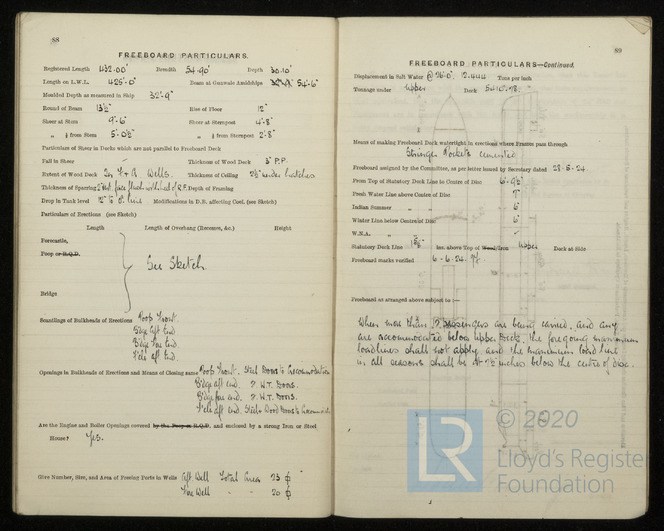 88
FREEBOARD PARTICULARS.
Registered Length 432·00' Breadth 54·90' Depth 30·10'
Length on L.W.L. 425'·0" Beam at Gunwale Amidships 54'·6"
Moulded Depth as measured in Ship 32'·9"
Round of Beam 13½" Rise of Floor 12"
Sheer at Stem 9'·6" Sheer at Sternpost 4'·8"
" ⅛ from Stem 5'·0½" " ⅛ from Sternpost 2'·8"
Particulars of Sheer in Decks which are not parallel to Freeboard Deck
Fall in Sheer Thickness of Wood Deck 3" P.P.
Extent of Wood Deck In F & A Wells. Thickness of Ceiling 2½" under hatches
Thickness of Sparring Depth of Framing
Drop in Tank level Modifications in D.B. affecting Cost. (see Sketch)
Particulars of Erections (see Sketch)
Length Length of Overhang (Recesses, &c.) Height
Forecastle,
Poop or R.Q.D.
See Sketch.
Bridge
Scantlings of Bulkheads of Erections Poop Front.
Bdge aft End.
Bdge Fore End.
F'cle aft End.
Openings in Bulkheads of Erections and Means of Closing same Poop Front. Steel Doors to Accommodation
Bdge aft end. 2 W.T. Doors.
Bdge fore end. 2 W.T. Doors.
F'cle aft end. Steel & Wood Doors to Accommodation
Are the Engine and Boiler Openings covered by the Poop or R.Q.D. and enclosed by a strong Iron or Steel
House? Yes.
Give Number, Size, and Area of Freeing Ports in Wells Aft Well Total Area 23
Fore Well " " 20
89
FREEBOARD PARTICULARS—Continued.
Displacement in Salt Water @ 26'·0" 12,444 Tons per inch
Tonnage under Upper Deck 5410·78
Means of making Freeboard Deck watertight in erections where Frames pass through
Stringer Pockets cemented
Freeboard assigned by the Committee, as per letter issued by Secretary dated 28·5·24
From Top of Statutory Deck Line to Centre of Disc 6'·9½"
Fresh Water Line above Centre of Disc 7"
Indian Summer " " 6"
Winter Line below Centre of Disc 6"
W.N.A. "
Statutory Deck Line ins. above Top of Wood/Iron Upper Deck at Side
Freeboard marks verified 6·6·24.
Freeboard as arranged above subject to:—
When more than 12 passengers are being carried, and any
are accommodated below Upper Deck, the foregoing maximum
loadlines shall not apply and the maximum load line
in all seasons shall be at inches below the centre of disc.
LR
© 2020
Lloyd's Register
Foundation